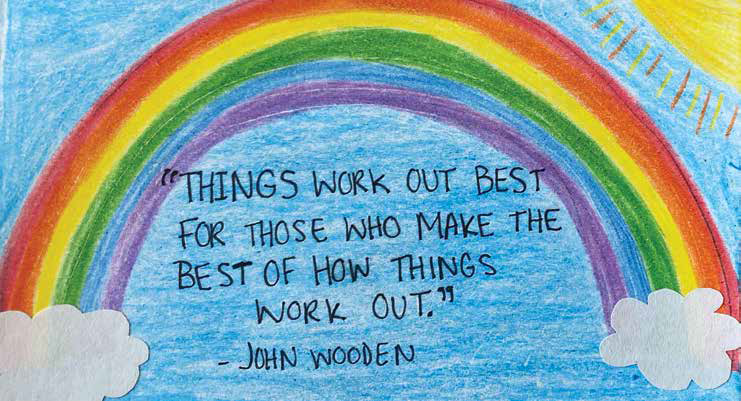 "THINGS WORK OUT BEST
FOR THOSE WHO MAKE THE
BEST OF HOW THINGS
WORK OUT."
- JOHN WOODEN